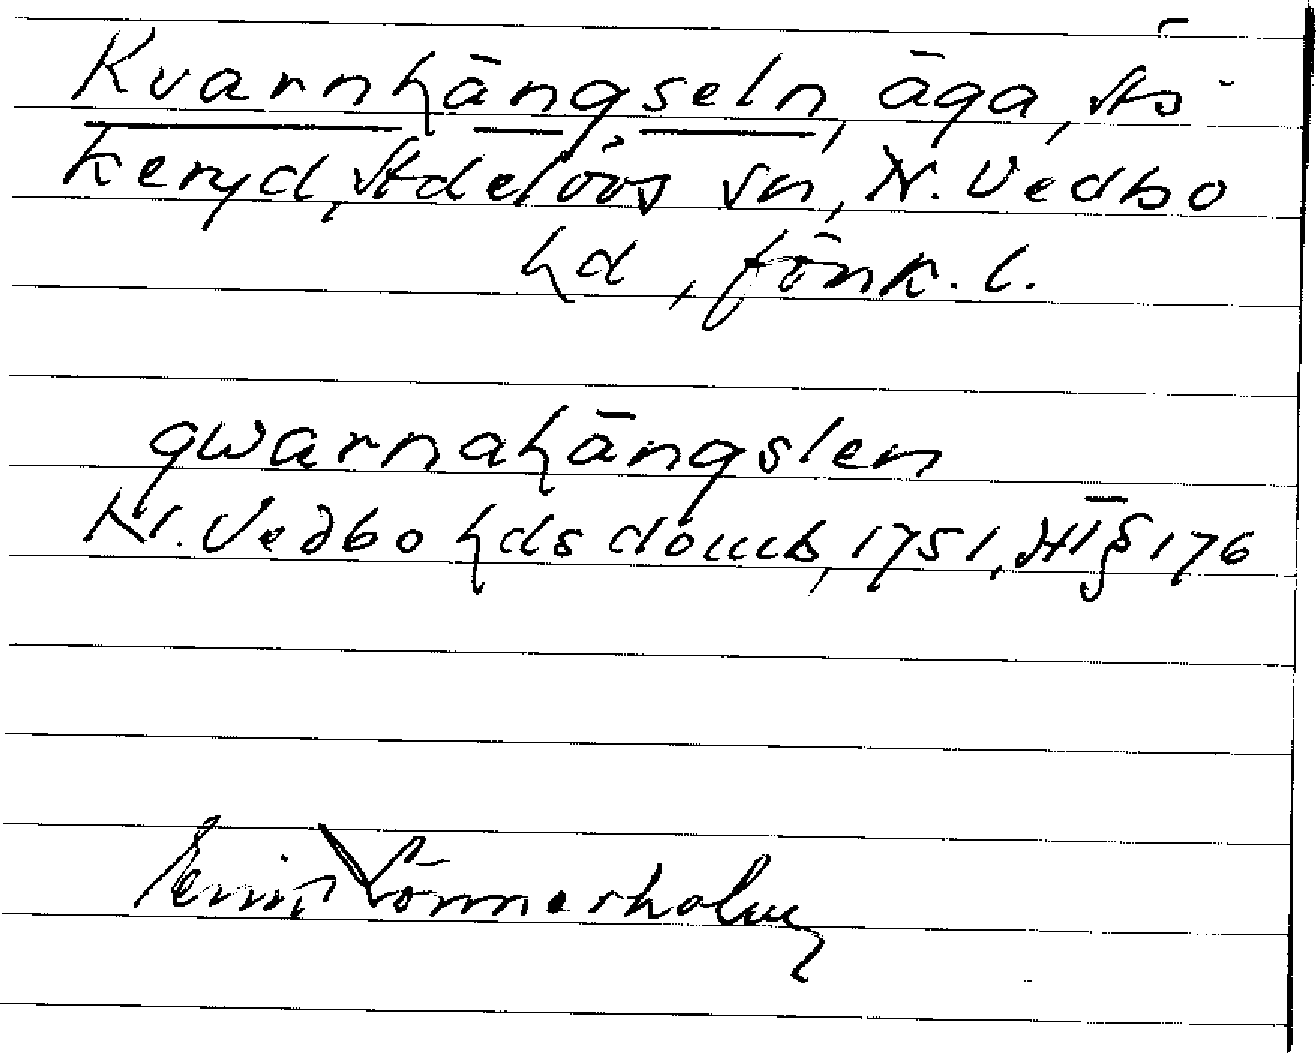 Kvarnhängseln, äga, Stö-
keryd, Stdelöövs sn, N. Vedbo
hd, Jönk. l.
qwarnahängslen
N. Vedbo hds domb, 1751, HT § 176
Lönnerholm